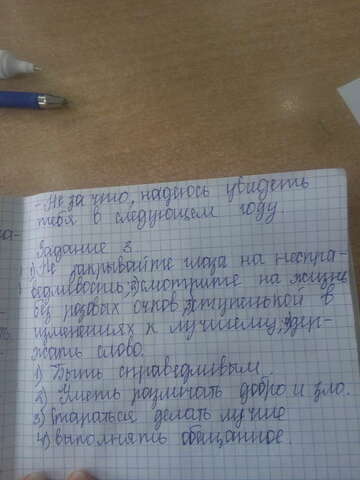 - Не за что, надеюсь увидеть
тебя в следующем году.
Задание 3
1) Не закрывайте глаза на неспра-
ведливость; 2) смотрите на жизнь
без розовых очков, 3) ступенькой в
изменениях к лучшему; 4) дер-
жать слово.
1) Быть справедливым
2) Уметь различать добро и зло.
3) Стараться делать лучше
4) выполнять обещанное.